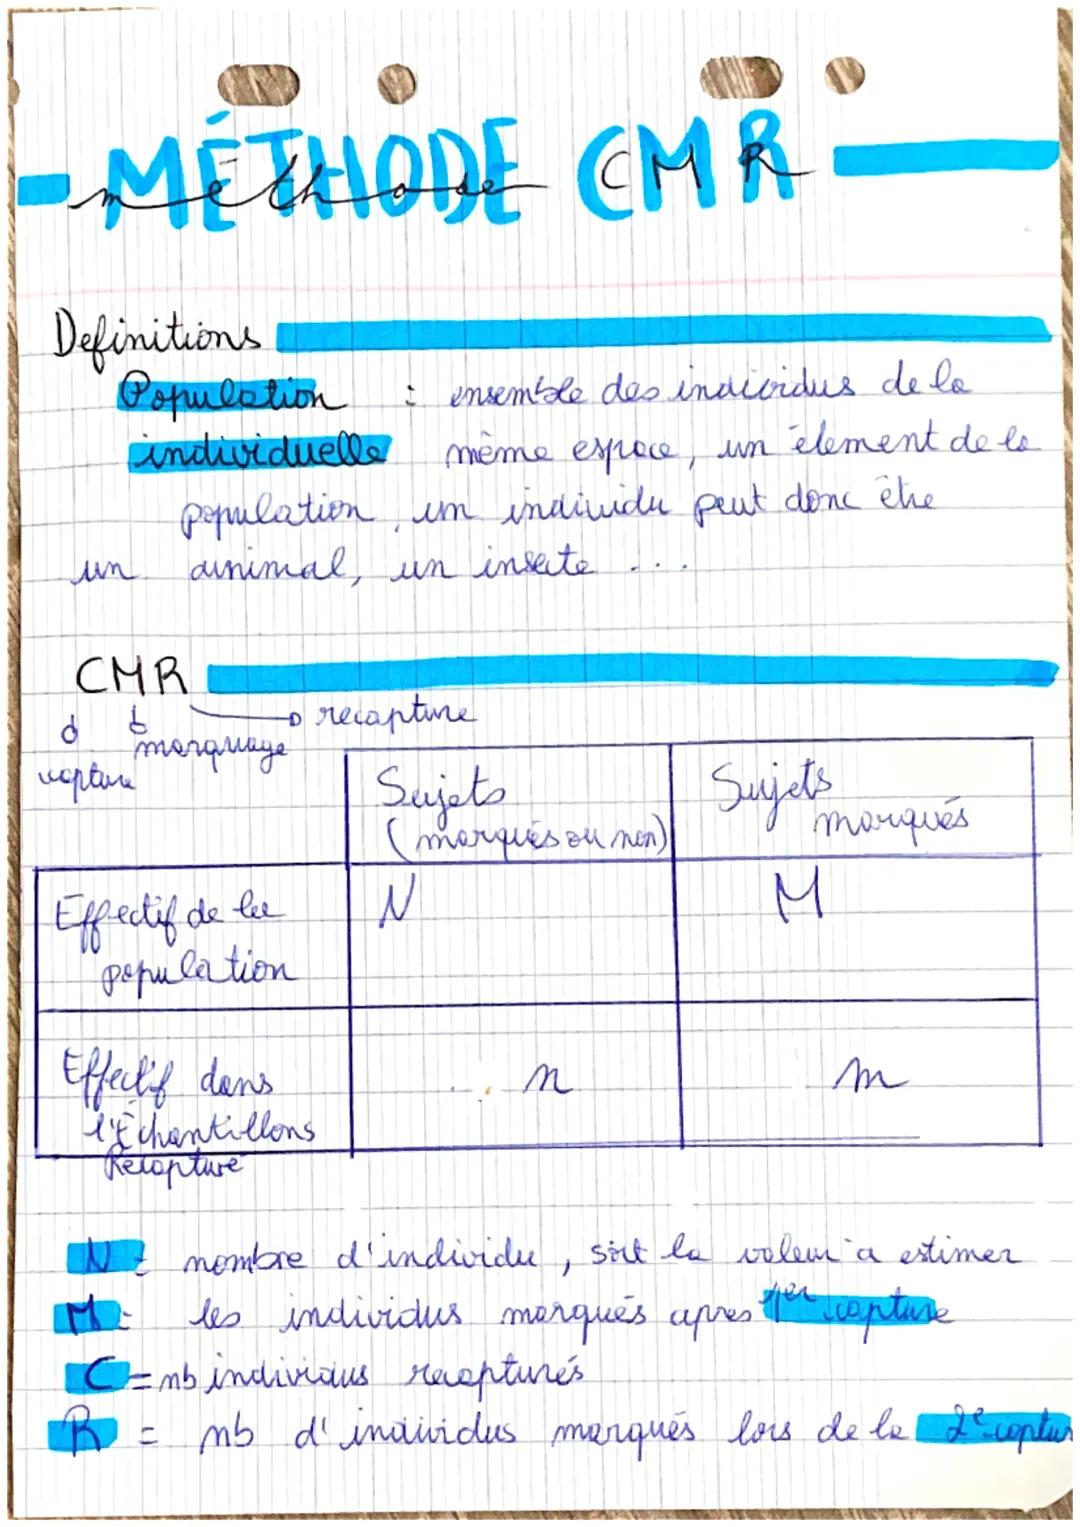 MÉTHODE CMR
méthode CMR
Definitions
Population : ensemble des individus de la
individuelle même espace, un élement de la
population, un individu peut donc être
un animal, un insecte ...
CMR
recapture
marquage
capture
Sujets
(marqués ou non)
Sujets
marqués
Effectif de la
population
N
M
Effectif dans
l'Échantillons
Recapture
n
m
N = nombre d'individu, soit la valeur a estimer
M = les individus marqués apres 1er capture
C = nb individus recapturés
R = nb d'individus marqués lors de la 2e captur